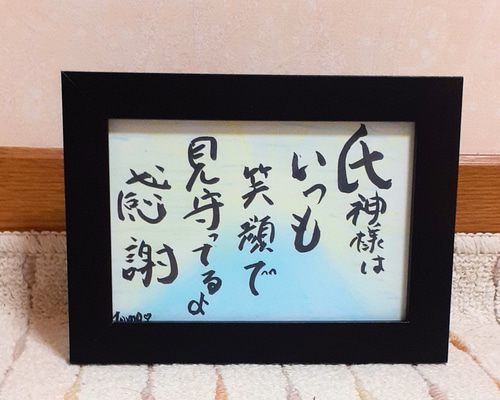 氏神様は
いつも
笑顔で
見守ってるよ
感謝